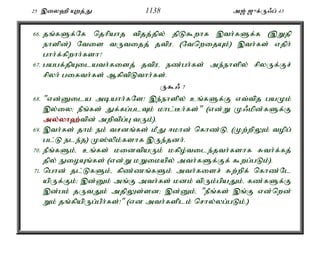 25 இலைஹி யுறத்து 1138 அஜ் ஜுக்ருஃப் 43
66. தங்களுக்கே தெரியாத விதத்தில் திடுகூறாக இவர்களுக்கு (இறுதி
நாளின்) வேளை வருவதைத் தவிர, (வேறெதையும்) இவர்கள் எதிர்
பார்க்கிறார்களா?
67. பயபக்தியுடையவர்களைத் தவிர, நண்பர்கள் அந்நாளில் சிலருக்குச்
சிலர் பகைவர்கள் ஆகிவிடுவார்கள்.
ருகூஃ 7
68. "என்னுடைய அடியார்களே! இந்நாளில் உங்களுக்கு எவ்வித பயமும்
இல்லை; நீங்கள் துக்கப்படவும் மாட்டீர்கள்" (என்று முஃமின்களுக்கு
அல்லாஹ்வின் அறிவிப்பு வரும்).
69. இவர்கள் தாம் நம் வசனங்கள் மீது ஈமான் கொண்டு, (முற்றிலும் வழிப்
பட்டு நடந்த) முஸ்லிம்களாக இருந்தனர்.
70. நீங்களும், உங்கள் மனைவியரும் மகிழ்வடைந்தவர்களாக சுவர்க்கத்
தில் நுழையுங்கள் (என்று மறுமையில் அவர்களுக்குக் கூறப்படும்).
71. பொன் தட்டுகளும், கிண்ணங்களும் அவர்களைச் சுற்றிக் கொண்டே
யிருக்கும்; இன்னும் அங்கு அவர்கள் மனம் விரும்பியதும், கண்களுக்கு
இன்பம் தருவதும் அதிலுள்ளன; இன்னும், "நீங்கள் இங்கு என்றென்
றும் தங்கியிருப்பீர்கள்!" (என அவர்களிடம் சொல்லப்படும்.)